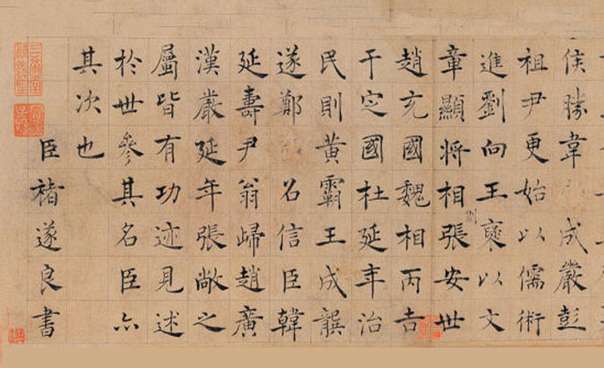 侯勝韋成嚴彭
祖尹更始以儒術
進劉向王褒以文
章顯將相則張安世
趙充國魏相丙吉
于定國杜延年治
民則黃霸王成龔
遂鄭召信臣韓
延壽尹翁歸趙廣
漢嚴延年張敞之
屬皆有功迹見述
於世參其名臣亦
其次也
臣褚遂良書